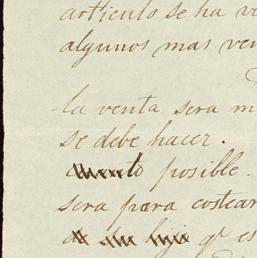 articulo se ha ve
algunos mas ven
la venta sera m
se debe hacer.
posible.
sera para costear
de su hijo qe es